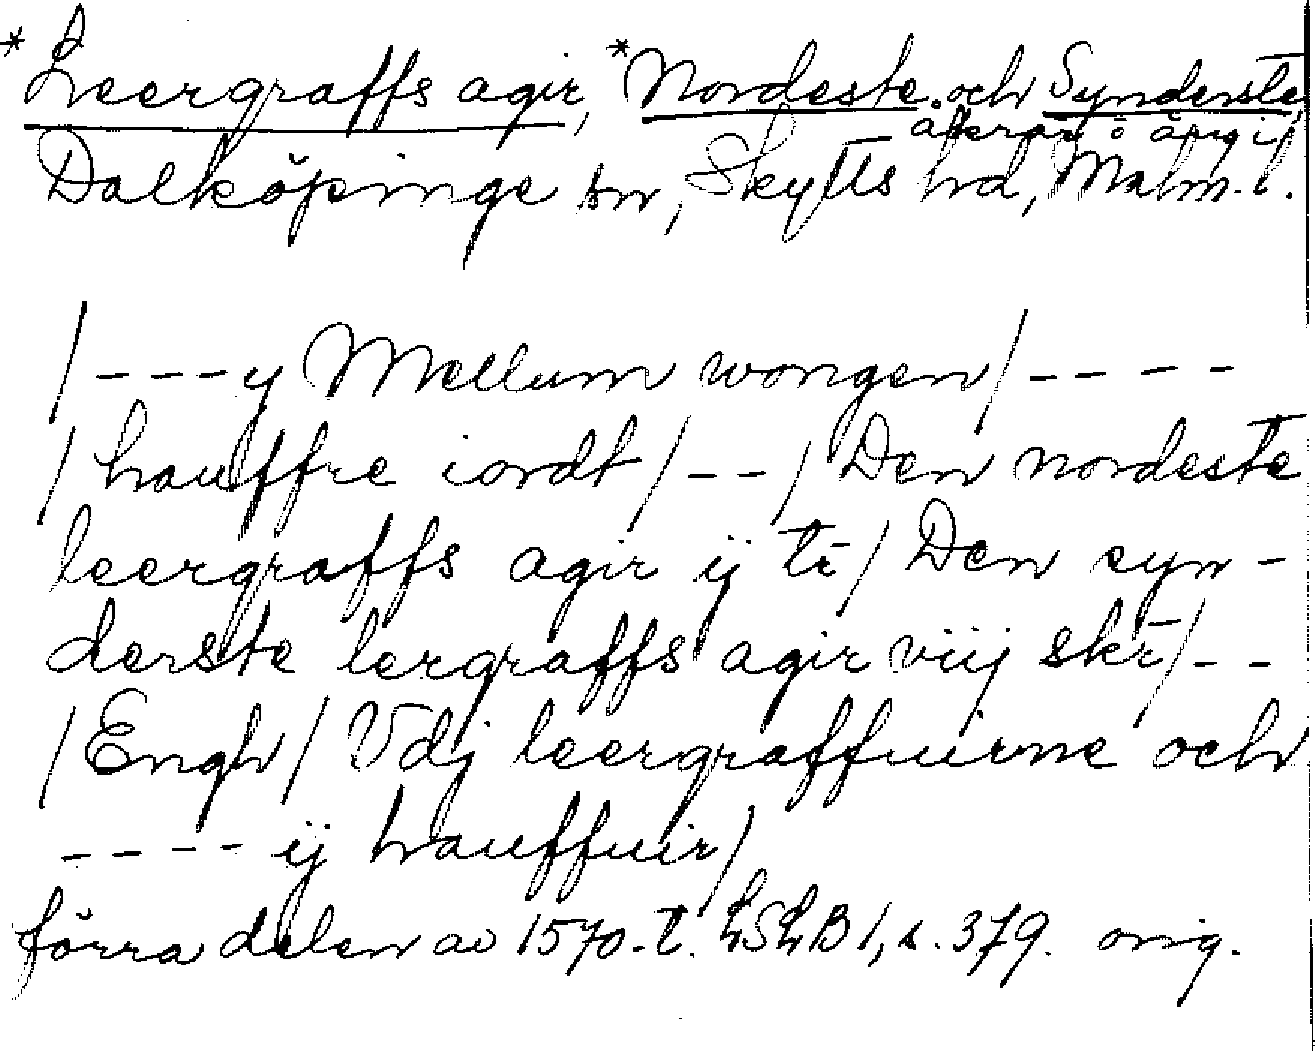 *Leergraffs agir, *Nordeste och Synderste
åkrar o äng i
Dalköpinge sn, Skytts hd, Malm. l.
/ - - - y Mellum wongen / - - - -
/ hauffre iordt / - - / Den nordeste
leergraffs agir ij tr / Den syn-
derste lergraffs agir viij skr / - -
/ Engh / Vdj leergraffuirne och
- - - - ij hauffuir /
förra delen av 1570-t. LSLB 1, s. 379. orig.